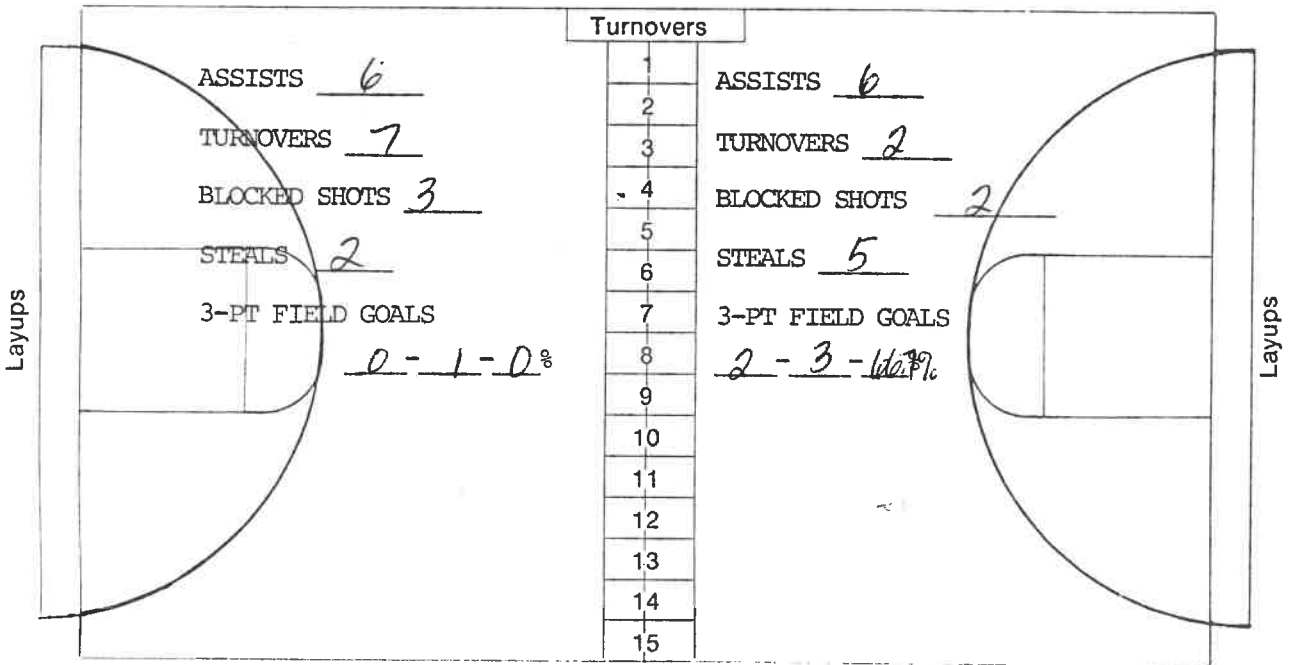 Turnovers
ASSISTS 6
TURNOVERS 7
BLOCKED SHOTS 3
STEALS 2
3-PT FIELD GOALS
0 - 1 - 0%
Layups
1
2
3
4
5
6
7
8
9
10
11
12
13
14
15
ASSISTS 6
TURNOVERS 2
BLOCKED SHOTS 2
STEALS 5
3-PT FIELD GOALS
2 - 3 - 66.7%
Layups